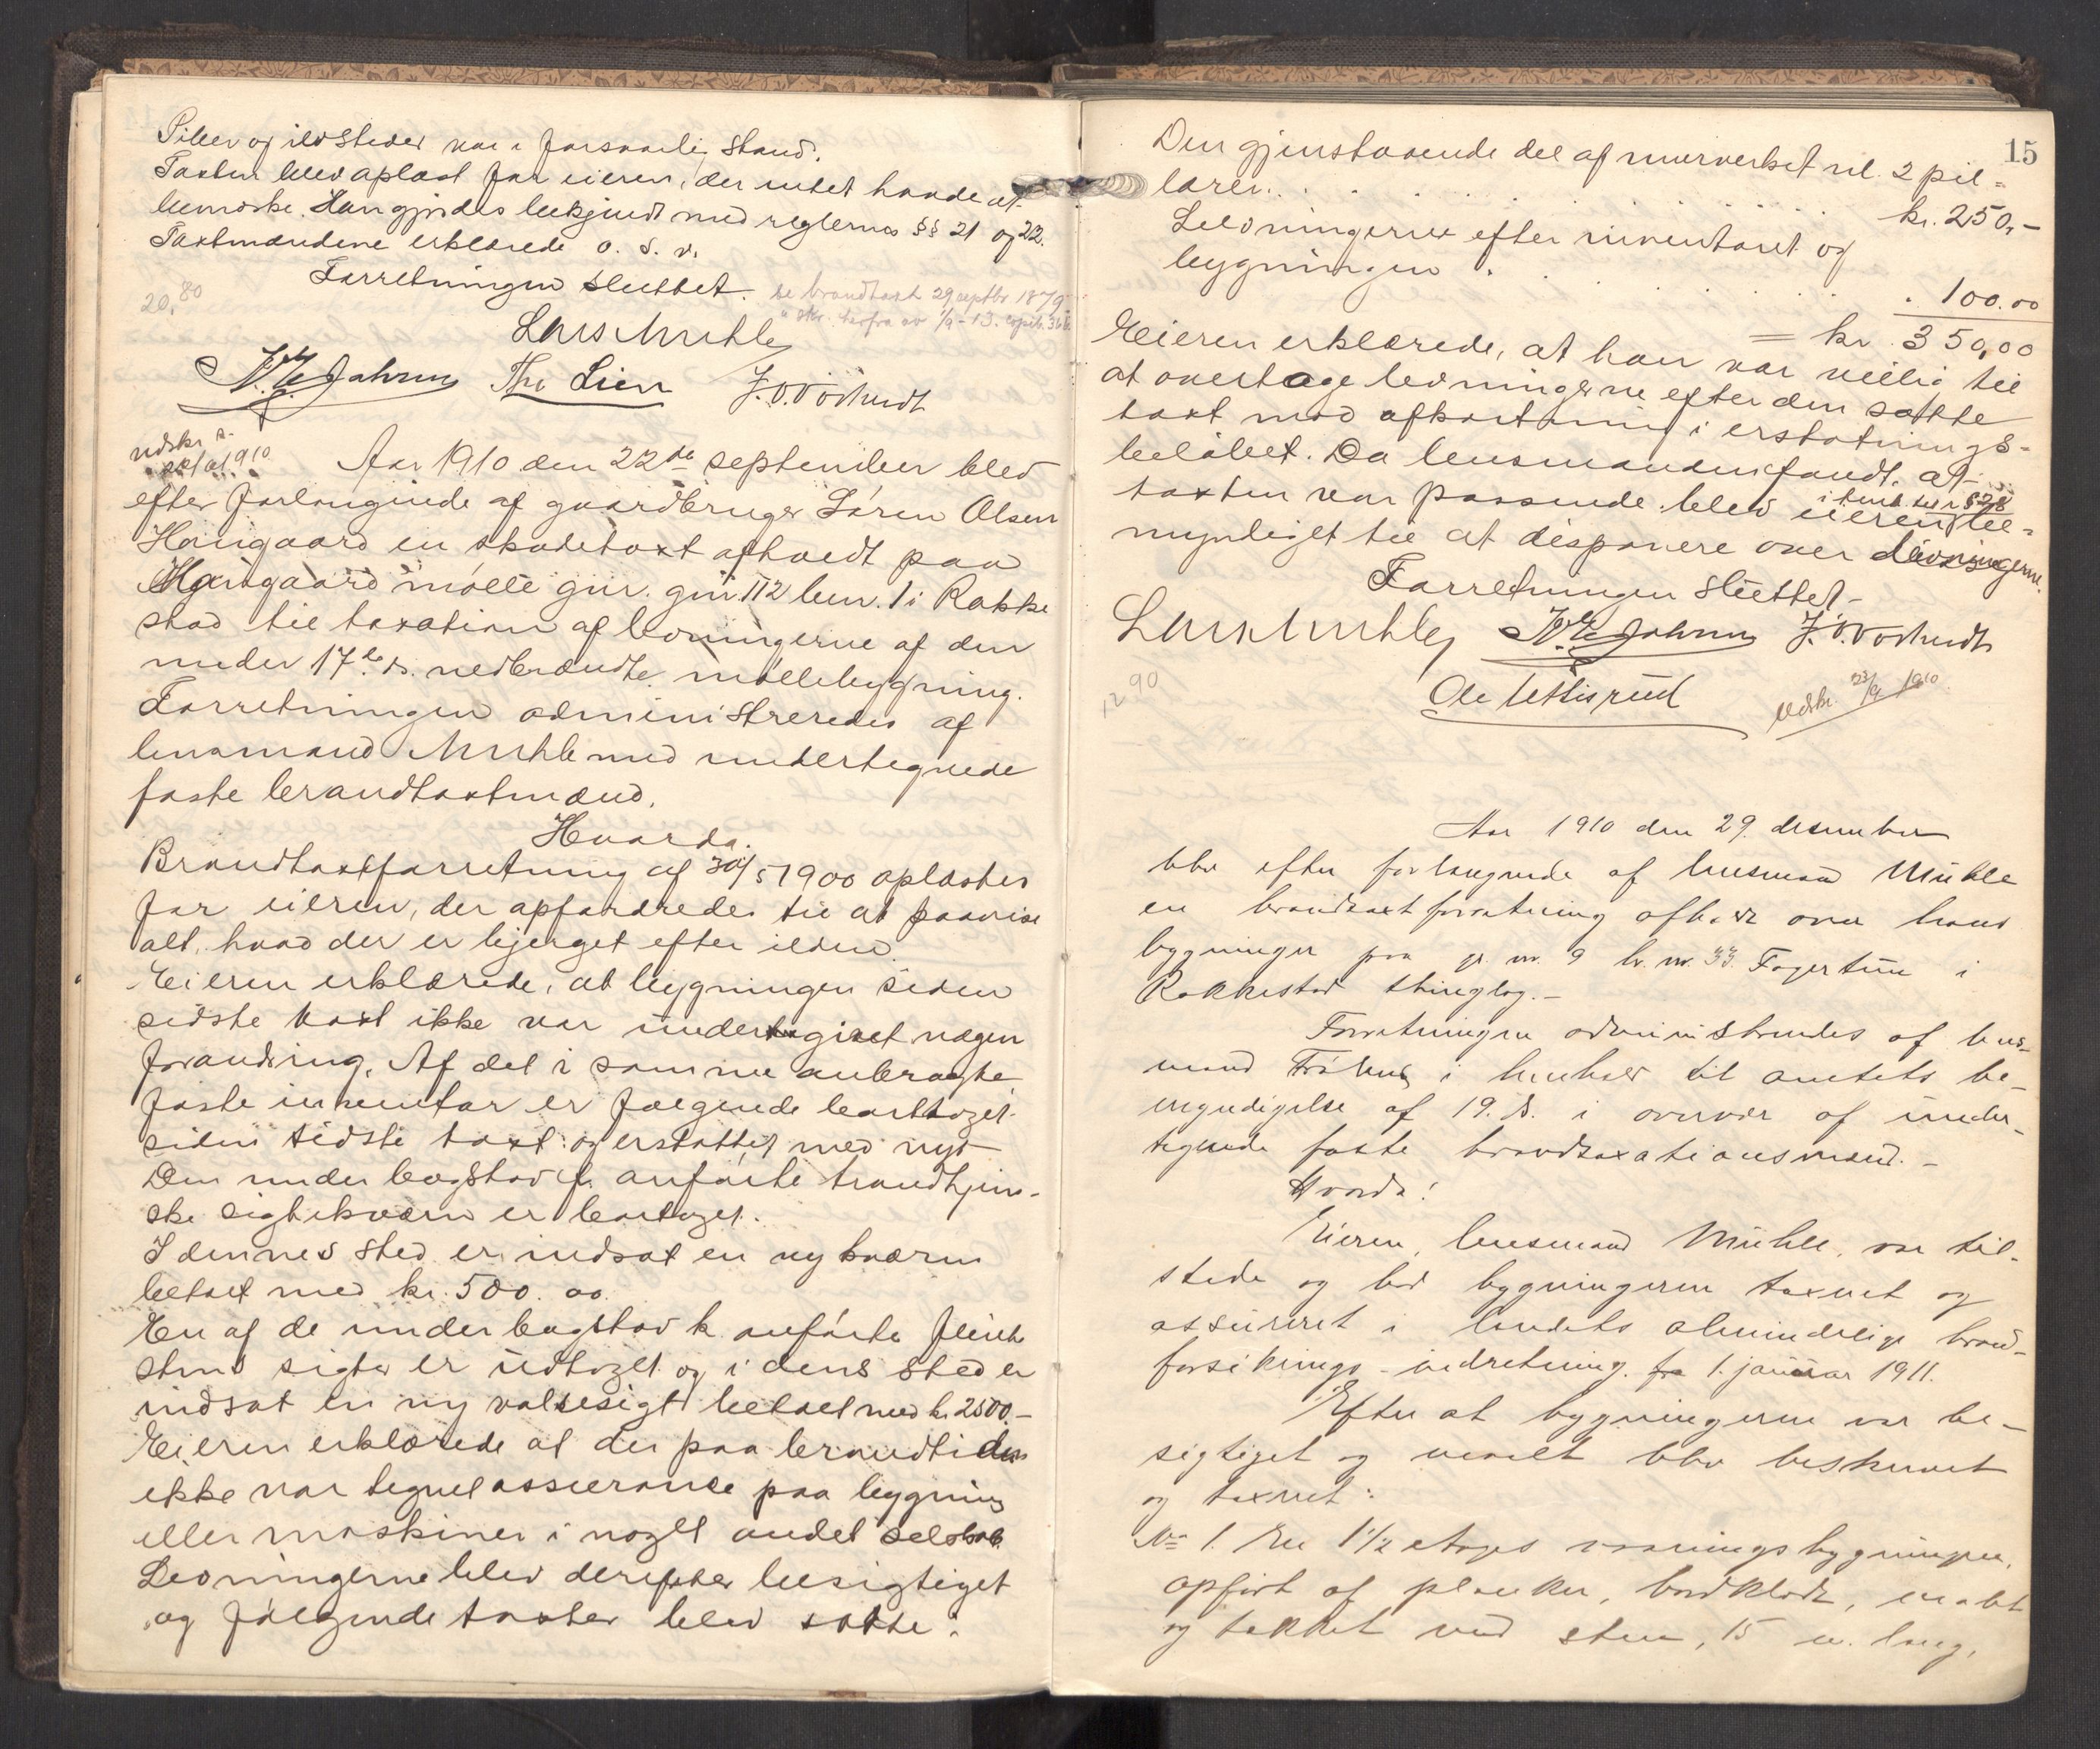 Piber og ildsteder var i forsvarlig stand.
Taxten blev oplæst for eieren, der intet havde at
bemærke. Han gjordes bekjendt med reglernes §§ 21 og 22.
Taxtmændene erklærede o. s. v.
Forretningen sluttet.
se brandtaxt 29 septbr 1879
20,80
Lars Muhle
Joh Lien
udskr.
1910
Aar 1910 den 22de september blev
efter forlangende af gaardbruger Søren Olsen
Haugaard en skadetaxt afholdt paa
Haugaard mølle gnr. 112 bnr. 1 i Rakke
stad til taxation af levningerne af den
under 17de ds. nedbrændte møllebygning.
Forretningen administreredes af
lensmand Muhle med undertegnede
faste brandtaxtmænd.
Hvorda.
Brandtaxtforretning af 30/5 1900 oplæstes
for eieren, der opfordredes til at paavise
alt, hvad der er bjerget efter ilden.
Eieren erklærede, at bygningen siden
sidste taxt ikke var undergivet nogen
forandring. Af det i samme anbragte
faste inventar er følgende borttaget
siden sidste taxt og erstattet med nyt
Den under bogstav anførte trondhjem-
ske sigtekværn er borttaget.
I dennes sted er indsat en ny kværn
betalt med kr. 500.00.
En af de under bogstav k anførte
sigter er udtaget og i dens sted er
indsat en ny valsesigt betalt med kr. 2500.-
Eieren erklærede at der paa brandtiden
ikke var tegnet assuranse paa bygning
eller maskiner i noget andet selskab.
Levningerne blev derefter besigtiget
og følgende taxter blev satte:
15
Den gjenstaaende del af murverket nl. 2 pil-
larer. . . . . . kr. 250,-
Levningerne efter inventaret og
bygningen . . . . . 100.00
= kr. 350,00
Eieren erklærede, at han var villig til
at overtage levningerne efter den satte
taxt mod afkortning i erstatnings-
beløbet. Da lensmanden fandt, at
taxten var passende blev eieren i hend. til § 28 be-
myndiget til at disponere over levningerne.
Forretningen sluttet.
Lars Muhle
1290
Udskr. 23/9 1910
Aar 1910 den 29. desember
blev efter forlangende af lensmand Mühle
en brandtaxtforretning afholdt over hans
bygninger paa gr. nr. 9 br. nr. 33 Fagertun i
Rakkestad thinglag.-
Forretningen administreredes af lens-
mand i henhold til amtets be-
myndigelse af 19. ds. i overvær af under-
tegnede faste brandtaxationsmænd.-
Hvorda!
Eieren, lensmand Mühle, var til-
stede og bad bygningerne taxeret og
assureret i landets almindelige brand-
forsikrings-indretning fra 1. januar 1911.
Efter at bygningerne var be-
sigtiget og maalt blev beskrevet
og taxeret:
No 1. En 1 1/2 etages vaaningsbygningen,
opført af planker, bordklædt, malt
og tækket med sten, 15 m. lang,